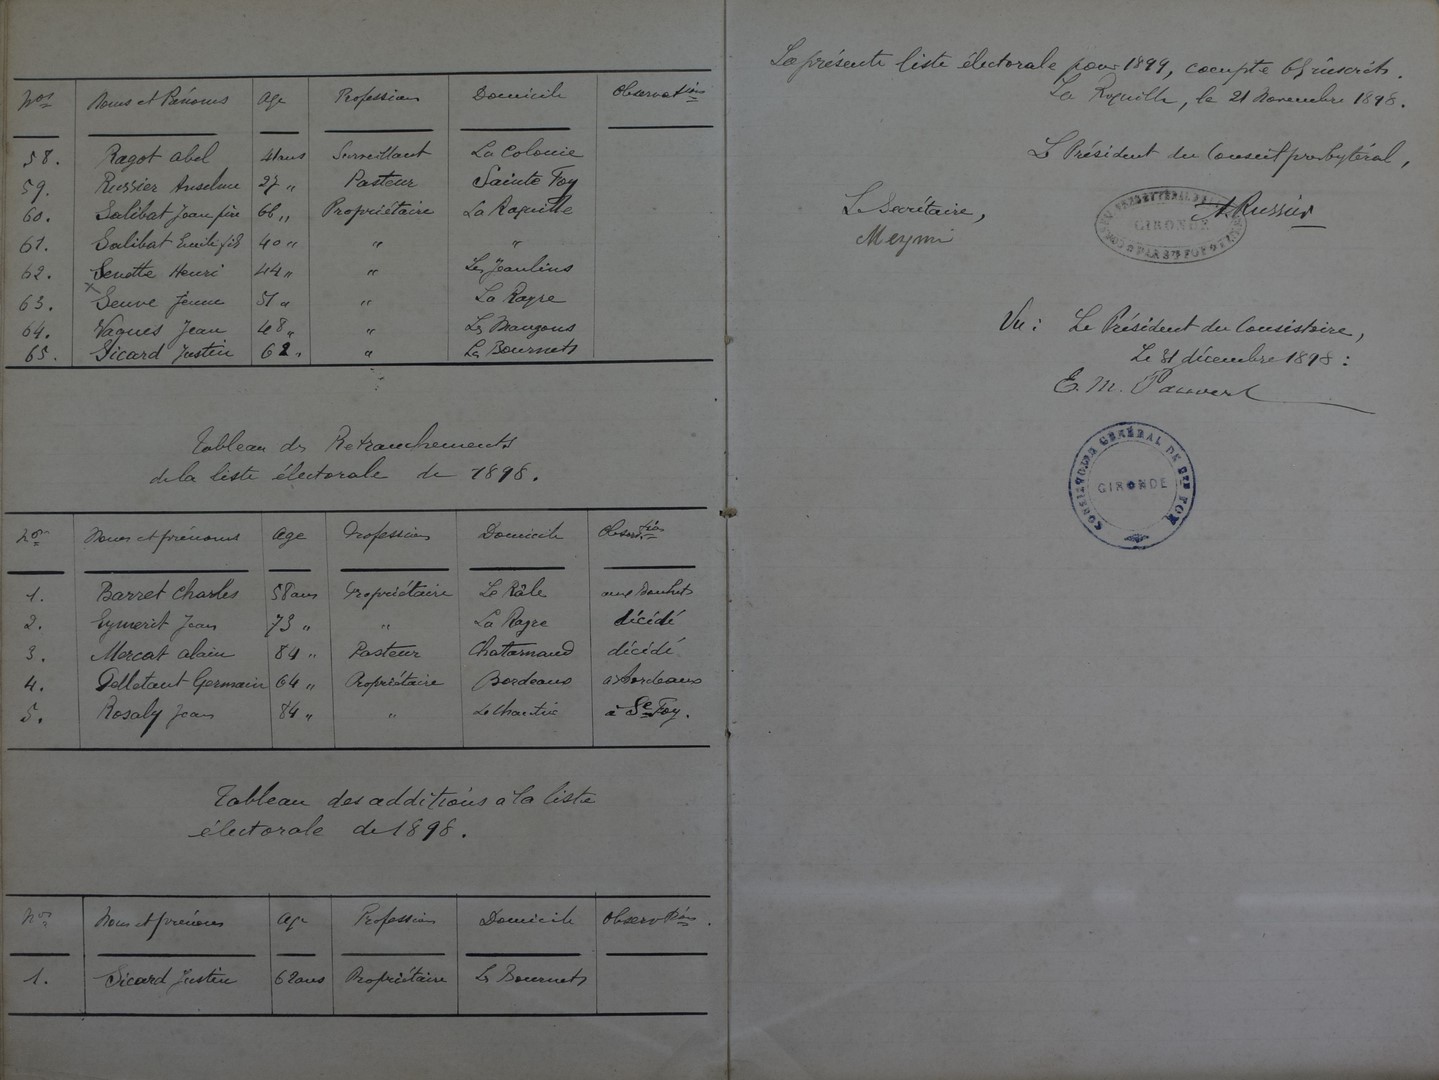 Nos Noms et Prénoms Age Profession Domicile Observations
58. Ragot Abel 41 ans Surveillant La Colonie
59. Russier Anselme 27 " Pasteur Sainte Foy
60. Salibat Jean père 66 " Propriétaire La Roquille
61. Salibat Emile fils 40 " " "
62. Senotte Henri 44 " " Les Jeaulins
63. Seuve Jeune 51 " " La Rayre
64. Vaques Jean 48 " " Les Mangons
65. Sicard Justin 62 " " Les Bournets
Tableau des Retranchements
de la liste électorale de 1898.
Nos Noms et prénoms Age Profession Domicile Observtions
1. Barret Charles 58 ans Propriétaire Le Râle aux Bouhets
2. Eymerit Jean 73 " " La Rayre décédé
3. Mercat Alain 84 " Pasteur Chatarnaud décédé
4. Pelletant Germain 64 " Propriétaire Bordeaux à Bordeaux
5. Rosaly Jean 84 " " à Ste Foy.
Tableau des additions à la liste
électorale de 1898.
Nos Noms et prénoms Age Profession Domicile Observations.
1. Sicard Justin 62 ans Propriétaire Les Bournets
La présente liste électorale pour 1899, compte 65 inscrits.
La Roquille, le 21 Novembre 1898.
Le Président du Conseil presbytéral,
A Russier
GIRONDE
Le Secrétaire,
Meymi
Vu : Le Président du Consistoire,
Le 31 décembre 1898 :
E. M. Pauvert
CONSISTOIRE GÉNÉRAL DE STE FOY
GIRONDE